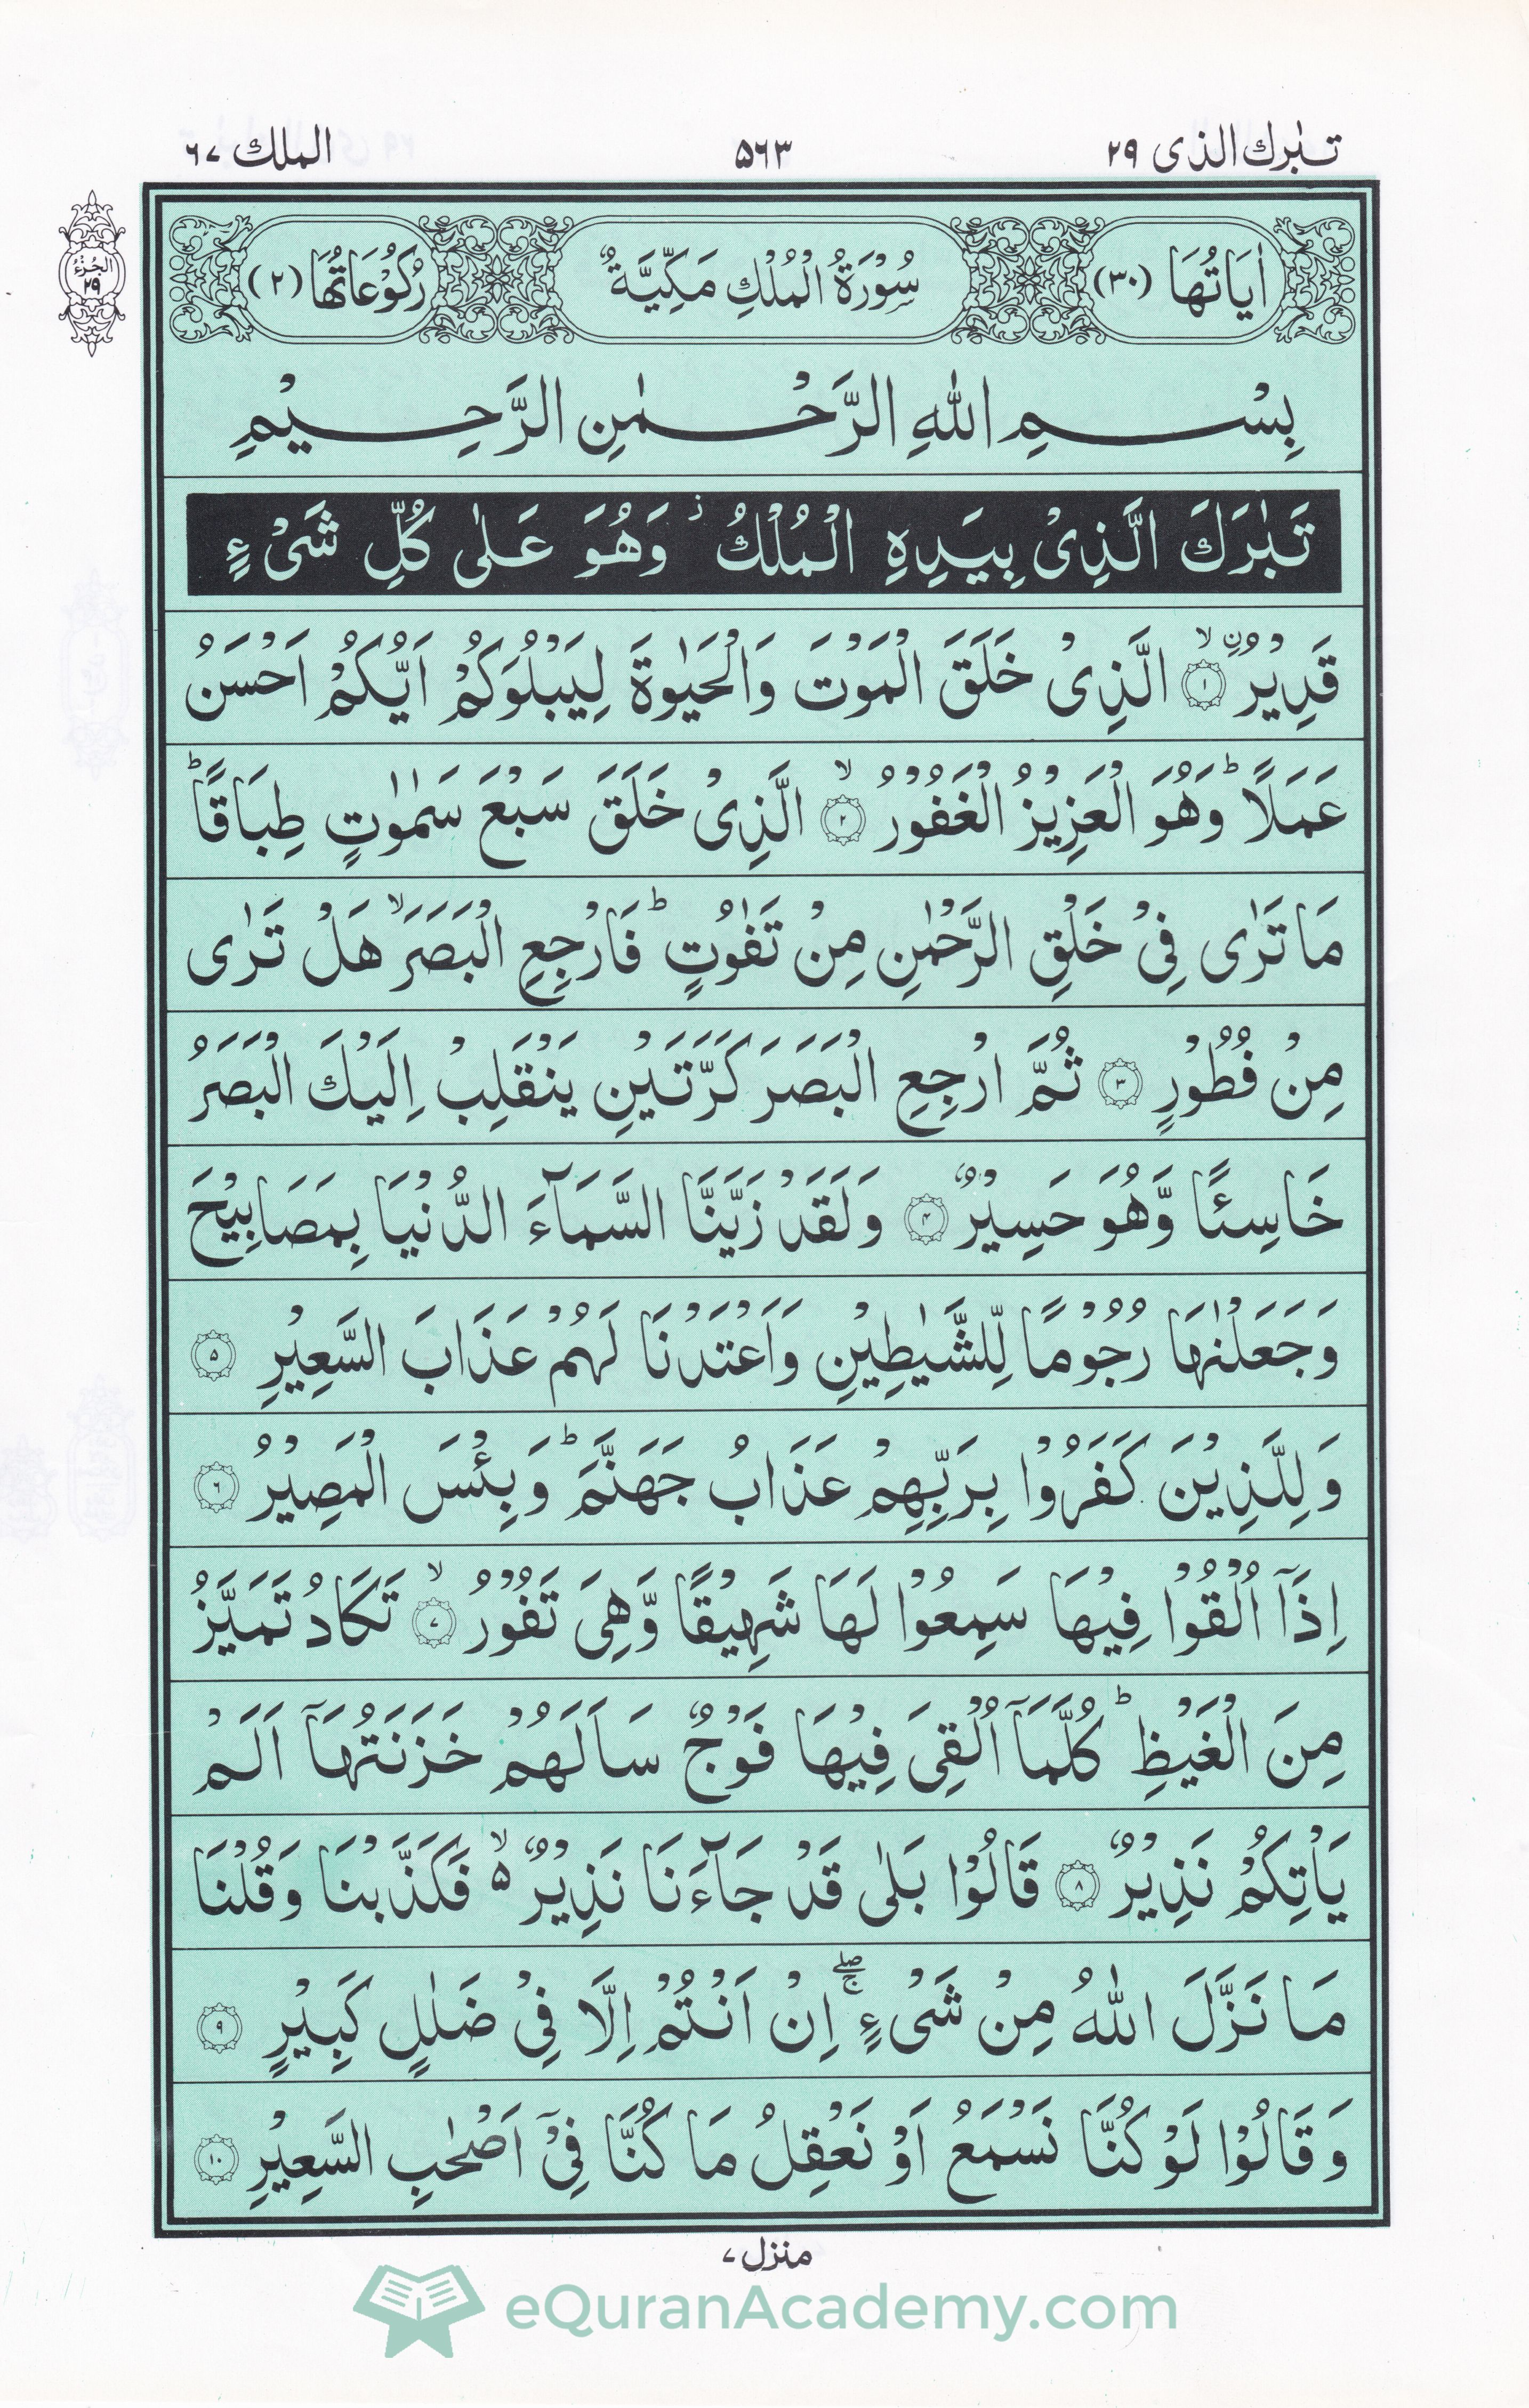 تبٰرك الذى ٢٩
٥٦٣
الملك ٦٧
الجُزْءُ
٢٩
اٰيَاتُهَا (٣٠)
سُوْرَةُ الْمُلْكِ مَكِّيَّةٌ
رُكُوْعَاتُهَا (٢)
بِسْمِ اللّٰهِ الرَّحْمٰنِ الرَّحِيْمِ
تَبٰرَكَ الَّذِىْ بِيَدِهِ الْمُلْكُ ز وَهُوَ عَلٰى كُلِّ شَىْءٍ
قَدِيْرُ ۨ ۙ ﴿١﴾ الَّذِىْ خَلَقَ الْمَوْتَ وَالْحَيٰوةَ لِيَبْلُوَكُمْ اَيُّكُمْ اَحْسَنُ
عَمَلًا ؕ وَهُوَ الْعَزِيْزُ الْغَفُوْرُ ۙ ﴿٢﴾ الَّذِىْ خَلَقَ سَبْعَ سَمٰوٰتٍ طِبَاقًا ؕ
مَا تَرٰى فِىْ خَلْقِ الرَّحْمٰنِ مِنْ تَفٰوُتٍ ؕ فَارْجِعِ الْبَصَرَ ۙ هَلْ تَرٰى
مِنْ فُطُوْرٍ ﴿٣﴾ ثُمَّ ارْجِعِ الْبَصَرَ كَرَّتَيْنِ يَنْقَلِبْ اِلَيْكَ الْبَصَرُ
خَاسِئًا وَّهُوَ حَسِيْرٌ ﴿٤﴾ وَلَقَدْ زَيَّنَّا السَّمَآءَ الدُّنْيَا بِمَصَابِيْحَ
وَجَعَلْنٰهَا رُجُوْمًا لِّلشَّيٰطِيْنِ وَاَعْتَدْنَا لَهُمْ عَذَابَ السَّعِيْرِ ﴿٥﴾
وَلِلَّذِيْنَ كَفَرُوْا بِرَبِّهِمْ عَذَابُ جَهَنَّمَ ؕ وَبِئْسَ الْمَصِيْرُ ﴿٦﴾
اِذَآ اُلْقُوْا فِيْهَا سَمِعُوْا لَهَا شَهِيْقًا وَّهِىَ تَفُوْرُ ۙ ﴿٧﴾ تَكَادُ تَمَيَّزُ
مِنَ الْغَيْظِ ؕ كُلَّمَآ اُلْقِىَ فِيْهَا فَوْجٌ سَاَلَهُمْ خَزَنَتُهَآ اَلَمْ
يَاْتِكُمْ نَذِيْرٌ ﴿٨﴾ قَالُوْا بَلٰى قَدْ جَآءَنَا نَذِيْرٌ ۙ ٥ فَكَذَّبْنَا وَقُلْنَا
مَا نَزَّلَ اللّٰهُ مِنْ شَىْءٍ ۖۚ اِنْ اَنْتُمْ اِلَّا فِىْ ضَلٰلٍ كَبِيْرٍ ﴿٩﴾
وَقَالُوْا لَوْ كُنَّا نَسْمَعُ اَوْ نَعْقِلُ مَا كُنَّا فِىْٓ اَصْحٰبِ السَّعِيْرِ ﴿١٠﴾
منزل ٧
eQuranAcademy.com